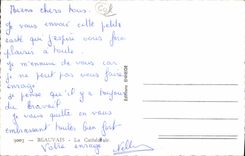 Biens chers tous.
Je vous envoie cette petite
carte qui j'espère vous fera
plaisir à toute.
Je m'ennuie de vous car
je ne peut pas vous faire
enrager
je pense qu'il y a toujours
du travail
je vous quitte en vous
embrassant toutes bien fort
Votre enragé Nelly
9003 - BEAUVAIS - La Cathédrale
Editions